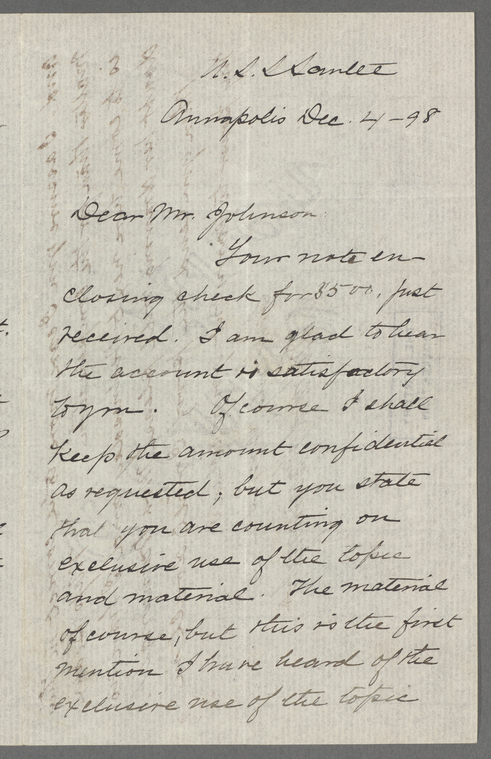 U.S.S Santee
Annapolis Dec. 4-98
Dear Mr. Johnson
Your note en-
closing check for $500. just
received. I am glad to hear
the account is satisfactory
to you. Of course I shall
keep the amount confidential
as requested; but you state
that you are counting on
exclusive use of the topic
and material. The material
of course, but this is the first
mention I have heard of the
exclusive use of the topic